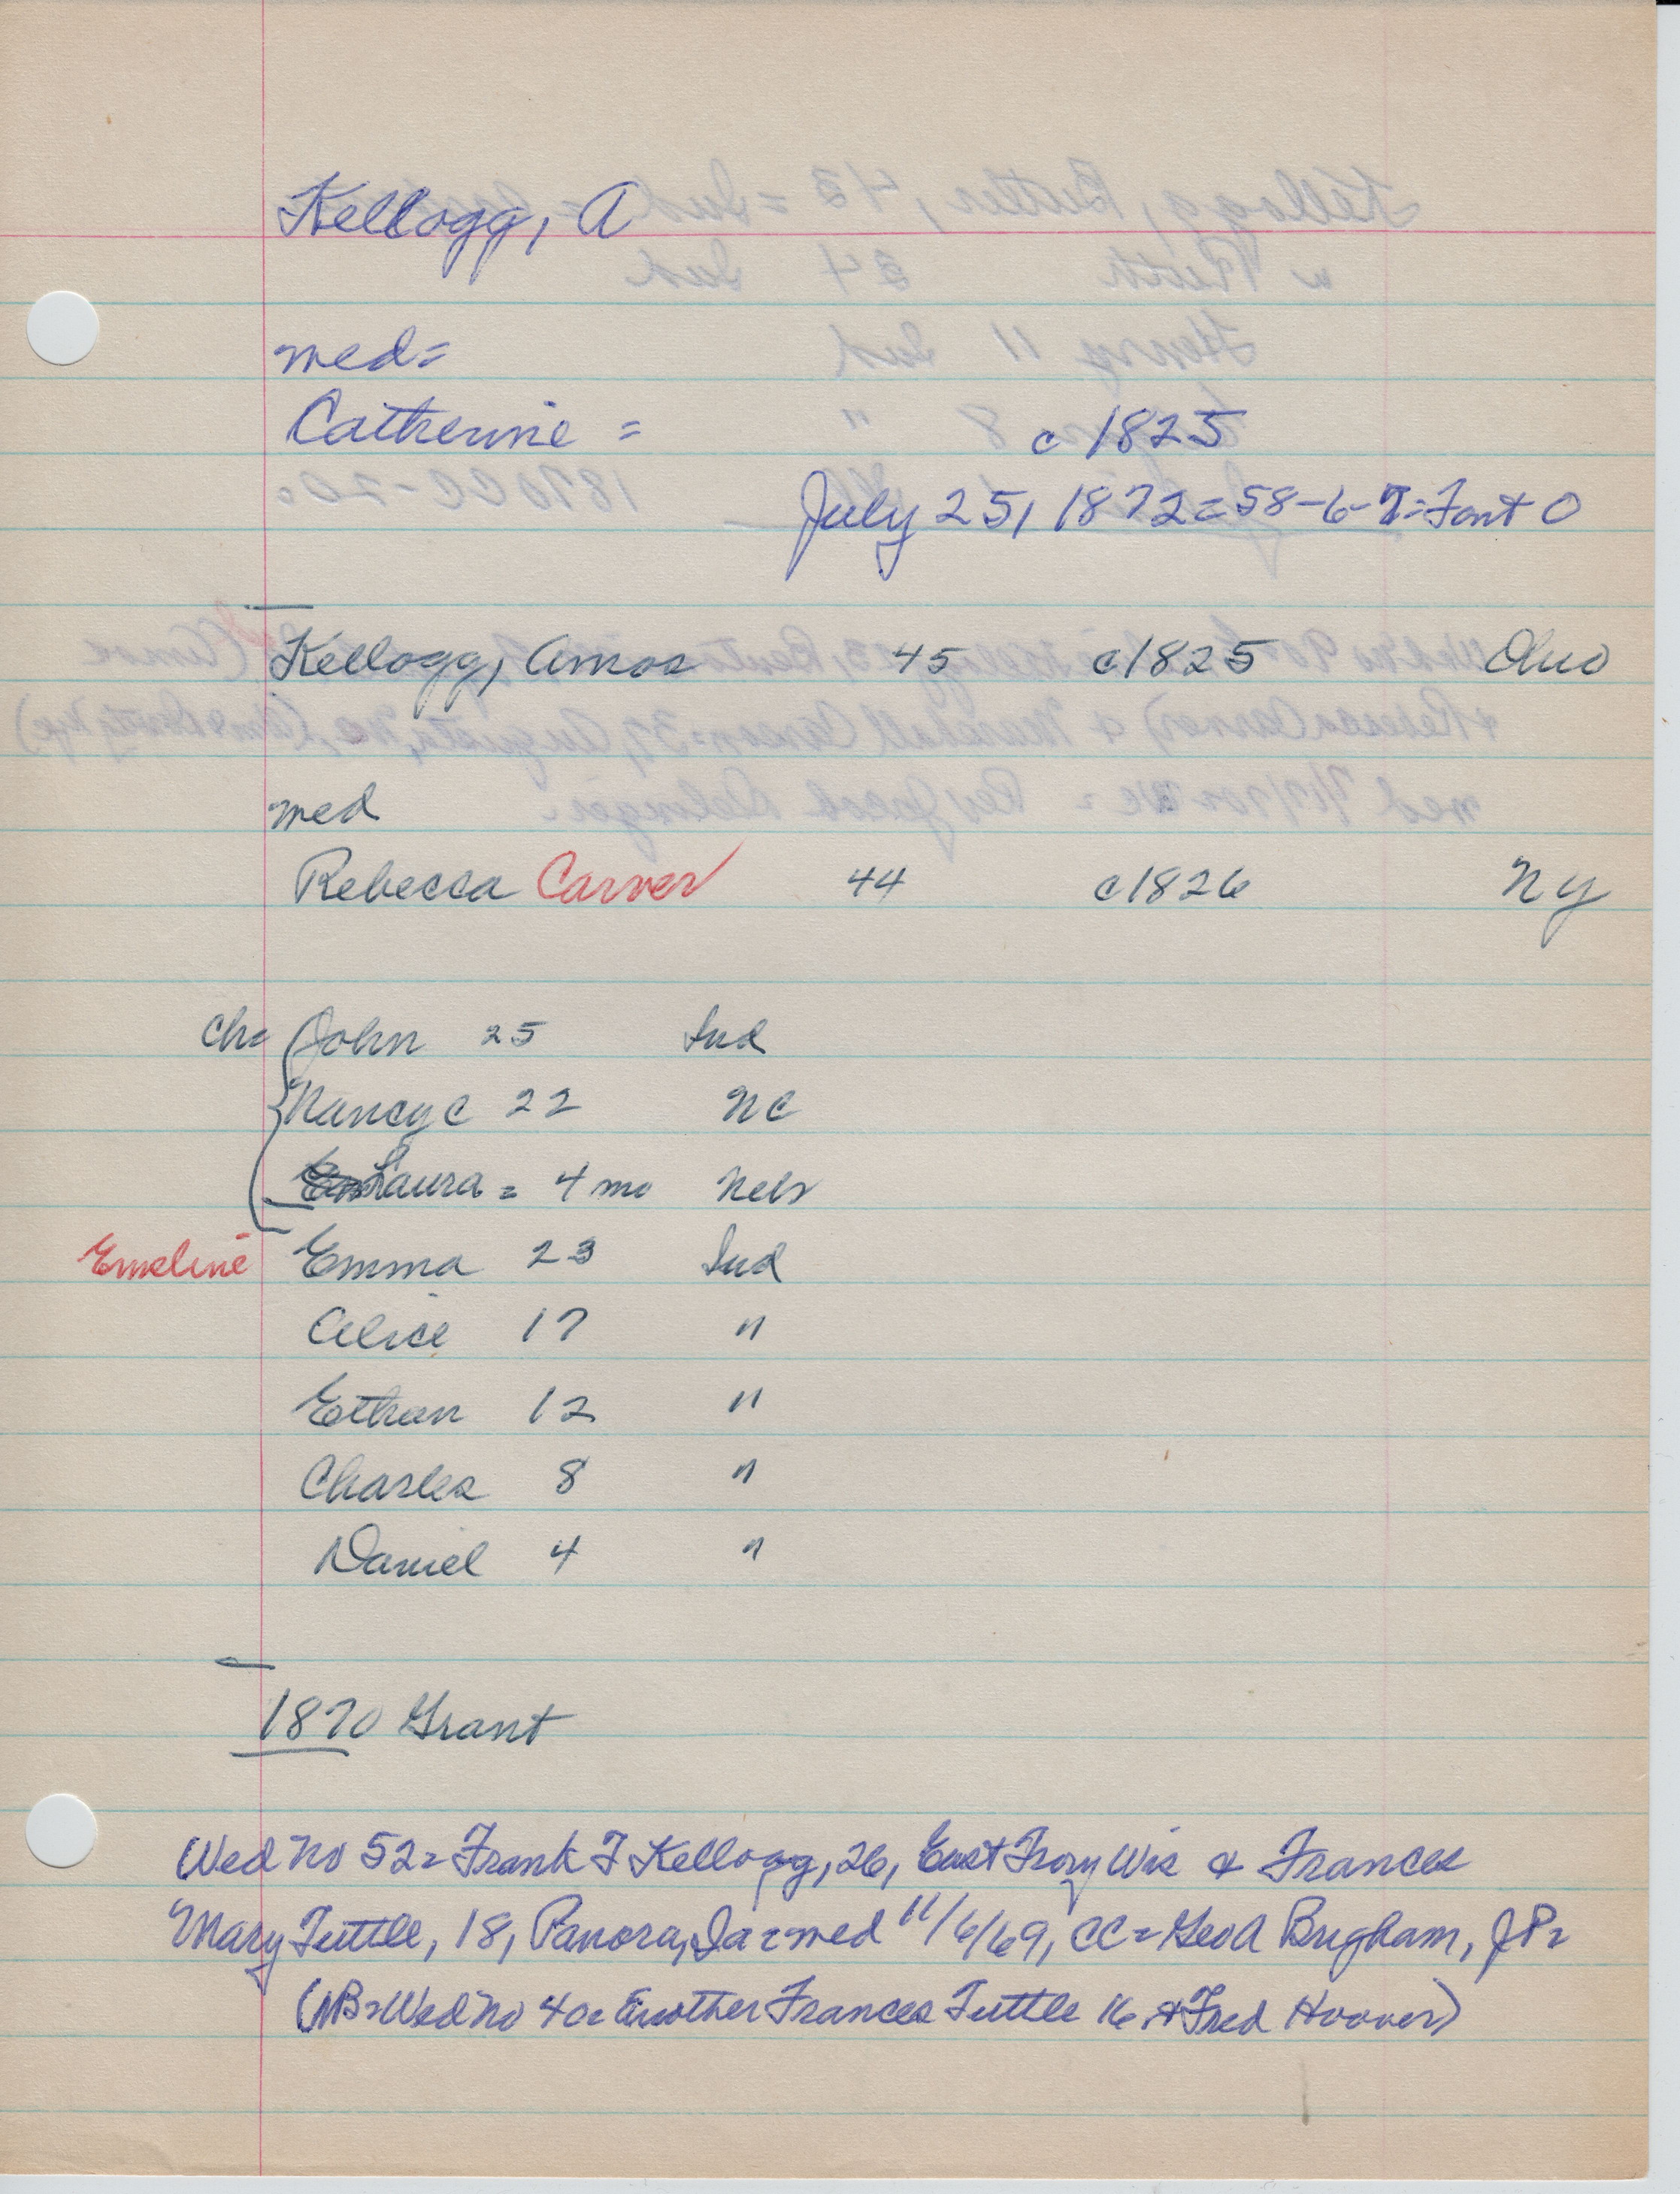 Kellogg, A
med=
Catherine = c 1825
July 25, 1872=58-6-7= Font O
Kellogg, Amos 45 c1825 Ohio
med
Rebecca Carver 44 c1826 NY
Ch= John 25 Ind
Nancy C 22 NC
Laura = 4 mo Nebr
Emeline Emma 23 Ind
Alice 17 "
Ethan 12 "
Charles 8 "
Daniel 4 "
1870 Grant
Wed No 52= Frank T Kellogg, 26, East Troy Wis & Frances
Mary Tuttle, 18, Panora, Ia = med 11/6/69, CC= Geo A Brigham, JP=
(NB=Wed No 40= Another Frances Tuttle 16 & Fred Hoover)